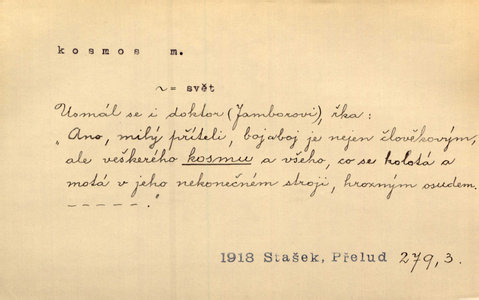 kosmos m.
~= svět
Usmál se i doktor (Jamborovi), řka:
"Ano, milý příteli, bojaboj je nejen člověkovým,
ale veškerého kosmu a všeho, co se kolotá a
motá v jeho nekonečném stroji, hrozným osudem.
- - - - - ."
1918 Stašek, Přelud 279,3.